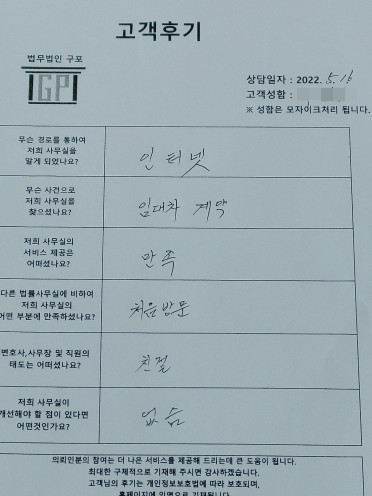 고객후기
법무법인 구포
GP
상담일자 : 2022. 5.16
고객성함 :
※ 성함은 모자이크처리 됩니다.
무슨 경로를 통하여
저희 사무실을
알게 되었나요?
인터넷
무슨 사건으로
저희 사무실을
찾으셨나요?
임대차 계약
저희 사무실의
서비스 제공은
어떠셨나요?
만족
다른 법률사무실에 비하여
저희 사무실의
어떤 부분에 만족하셨나요?
처음방문
변호사,사무장 및 직원의
태도는 어떠셨나요?
친절
저희 사무실이
개선해야 할 점이 있다면
어떤것인가요?
없음
의뢰인분의 참여는 더 나은 서비스를 제공해 드리는데 큰 도움이 됩니다.
최대한 구체적으로 기재해 주시면 감사하겠습니다.
고객님의 후기는 개인정보보호법에 따라 보호되며,
홈페이지에 익명으로 기재됩니다.